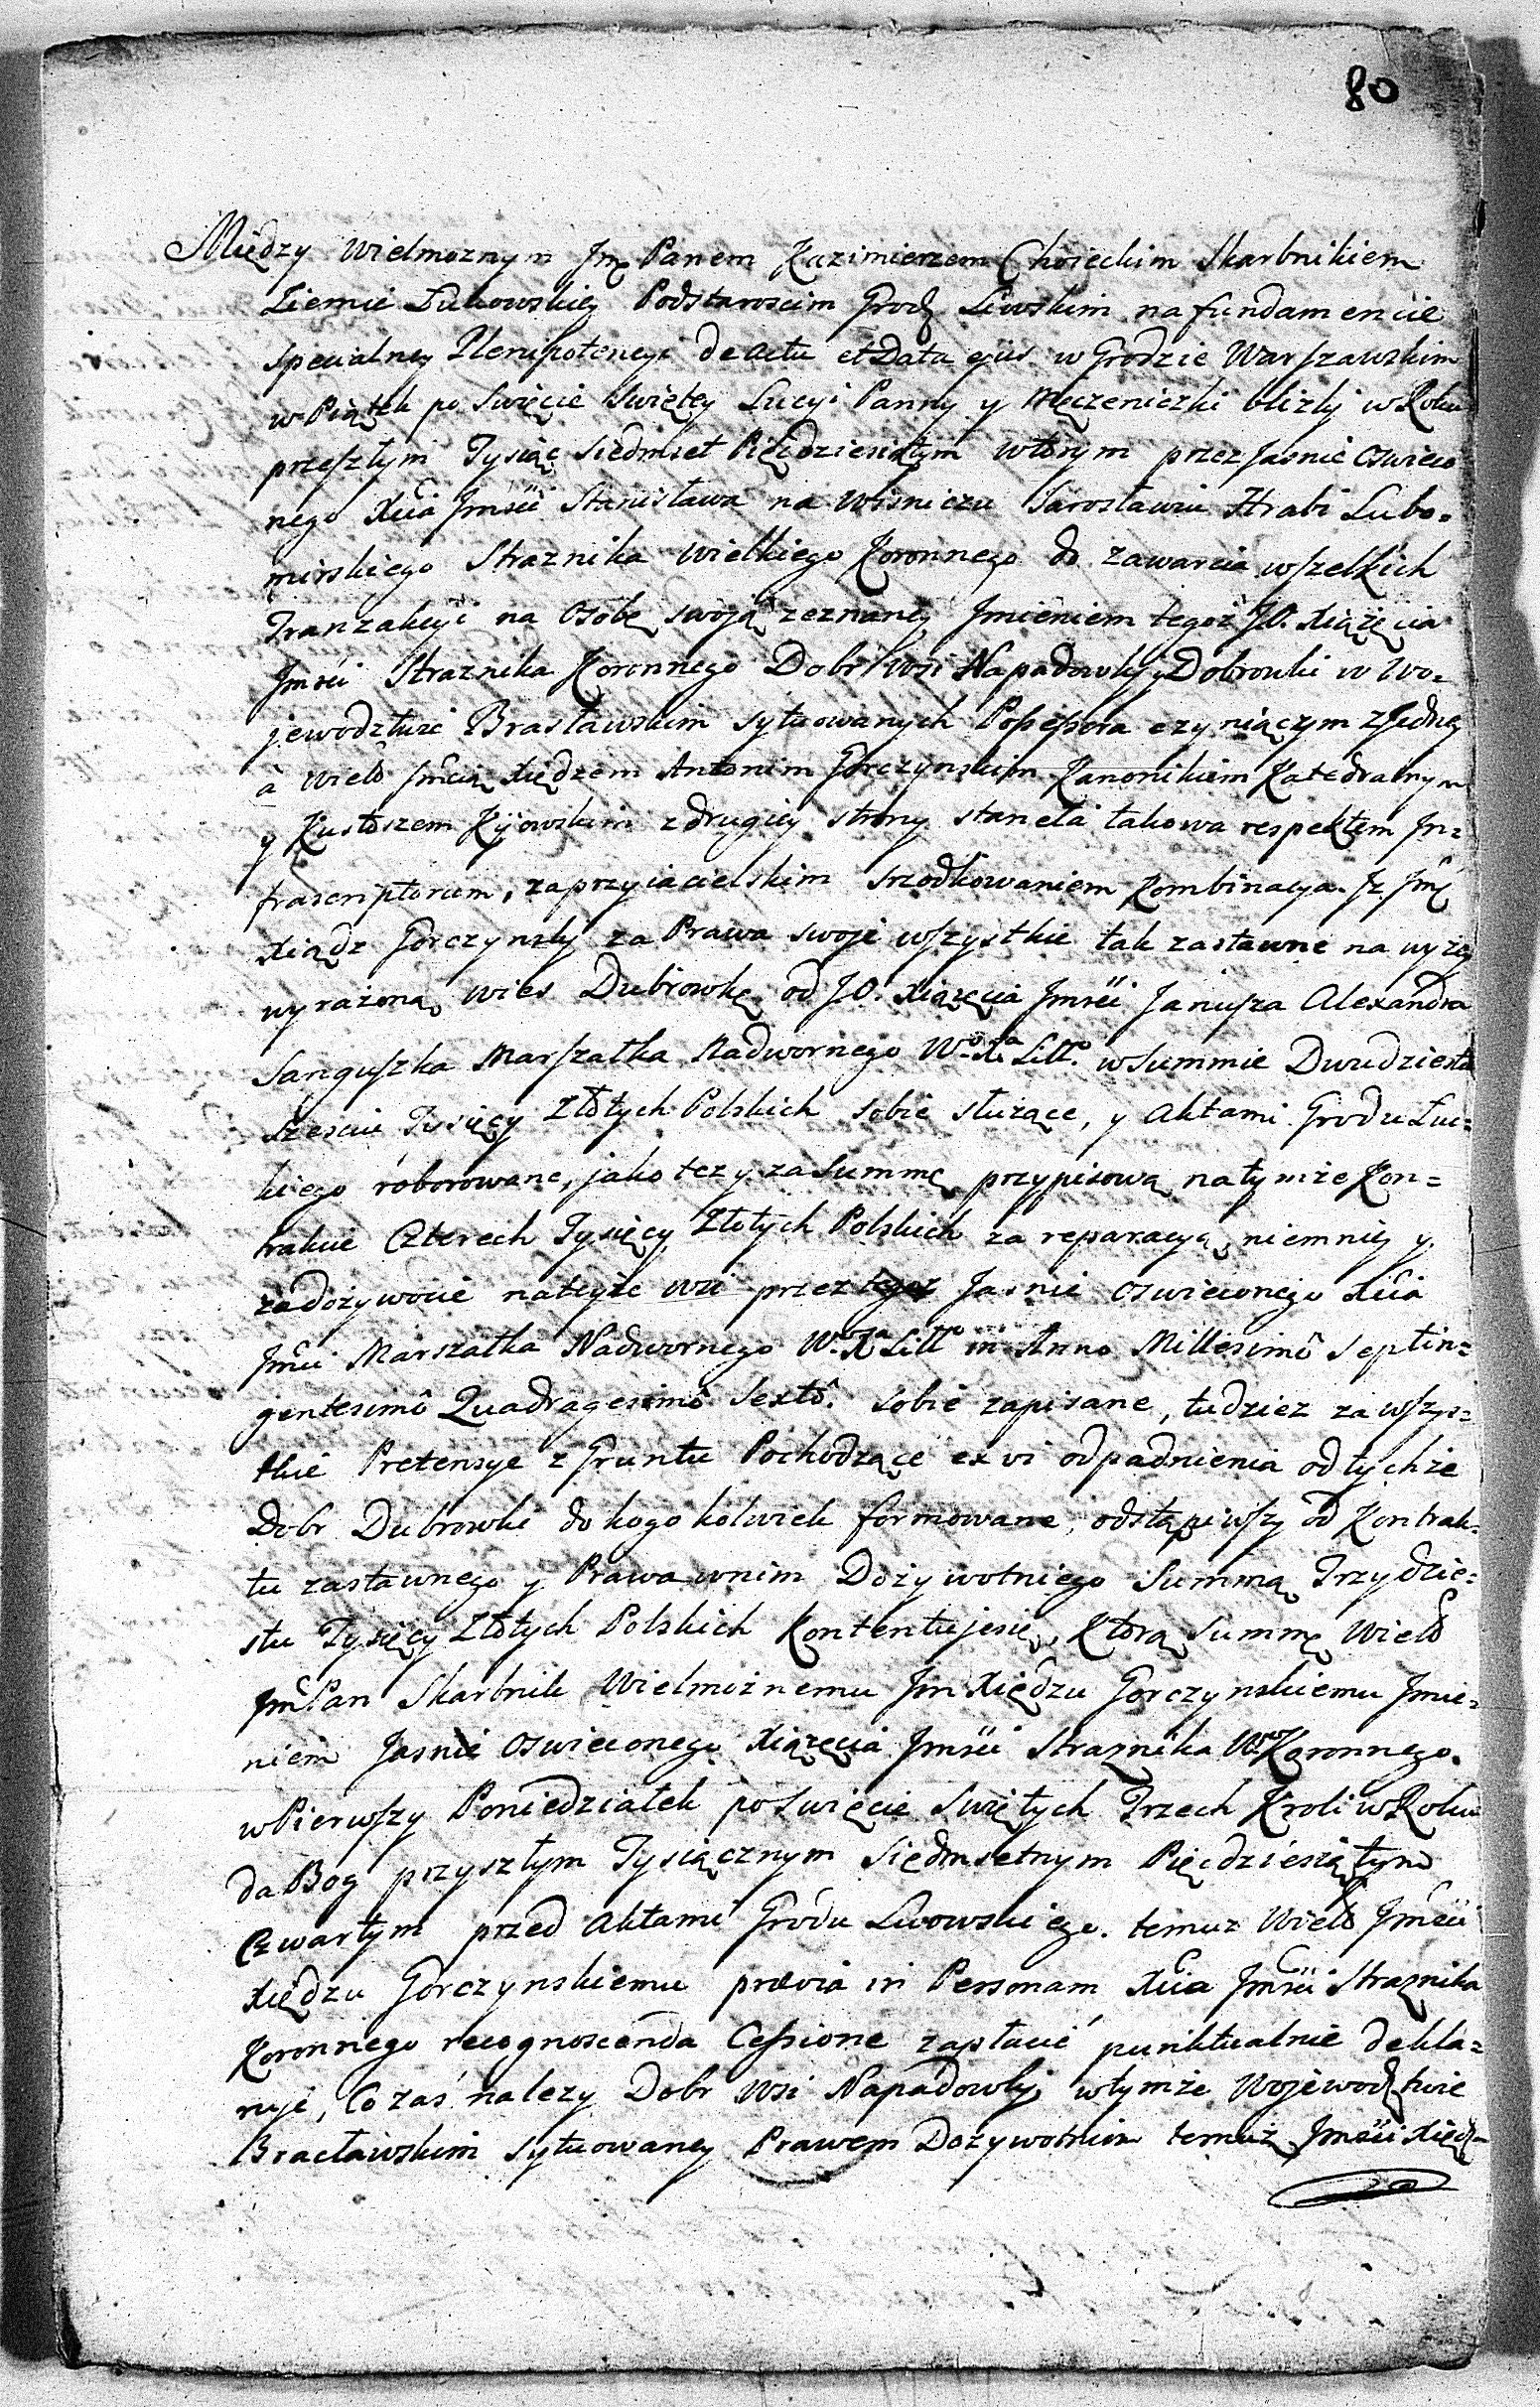 80
Między Wielmoznym Jmę Panem Kazimierzem Choieckim Skarbnikiem
Ziemie Łukowskiey Podstaroscim Grodz Liwskim na fundamencie
specialney Plenipotencyi de actu et Data ejus w Grodzie Warszawskim
w Piątek po Swięcie Swiętey Lucyi Panny y Męczeniczki blizły w Roku
przeszłym Tysiąc Siedmset Pięcdziesiątym wtorym przez Jasnie Oswieco
nego Xcia Jmści Stanisława na Wisniczu Jarosławiu Hrabi Lubo-
mirskiego Straznika Wielkiego Koronnego do zawarcia wszelkich
Tranzakcyi na Osobę swoją zeznaney Jmieniem tegoż J.O. Xiążęcia
Jmści Straznika Koronnego Dobr Wsi Napadowki y Dobrowki w Wo-
jewodztwie Brasławskim sytuowanych Possessora czyniącym z Jedney
à Wielo Jmcią Xiędzem Antonim Gorczynskim Kanonikiem Katedralnym
y Kustoszem Kijowskim z drugiey strony staneła takowa respektem In-
frascriptorum, za przyiacielskim srzodkowaniem Kombinacya. Jz Jmę
Xiądz Gorczynsky za Prawa swoje wszystkie tak zastawne na wyżey
wyrażoną wies Dubrowkę od J.O. Xiążęcia Jmści Janusza Alexandra
Sanguszka Marszałka Nadwornego Wo Xa Litto w Summie Dwudziestu
Szesciu Tysięcy Złotych Polskich sobie służące, y Aktami Grodu Łuc-
kiego roborowane, jako tez y za Summę przypisową na tymże Kon-
trakcie Czterech Tysięcy Złotych Polskich za reparacyą, niemniey y
za dozywocie na teyże wsi przez tegoz Jasnie Oswieconego Xcia
Jmci Marszałka Nadwornego Wo Xa Litto in Anno Millesimô Septin-
gentesimô Quadragesimô Sextô. sobie zapisane, tudziez za wszys-
tkie Pretensye z Gruntu Pochodzące ex vi odpadnienia od tychże
Dobr Dubrowki do kogokolwiek formowane, odstąpiwszy od Kontrak-
tu zastawnego y Prawa wnim Dożywotniego Summą Trzydzie-
stu Tysięcy Złotych Polskich Kontentuje się, Którą Summę Wielo
Jmć Pan Skarbnik Wielmożnemu Jm Xiędzu Gorczynskiemu Jmie-
niem Jasnie Oswieconego Xiążęcia Jmści Straznika W. Koronnego.
w Pierwszy Poniedziałek po Swięcie Swiętych Trzech Kroli w Roku
da Bog przyszłym Tysiącznym Siedmsetnym Pięcdziesiątym
Czwartym przed Aktami Grodu Lwowskiego. temuz Wielo Jmści
Xiędzu Gorczynskiemu prævia in Personam Xcia Jmści Straznika
Koronnego recognoscenda Cessione zapłacić punktualnie dekla-
ruje, Co zaś nalezy Dobr Wsi Napadowky wtymże Wojewodztwie
Bracławskim sytuowaney Prawem Dozywotnim temuż Jmści Xięd-